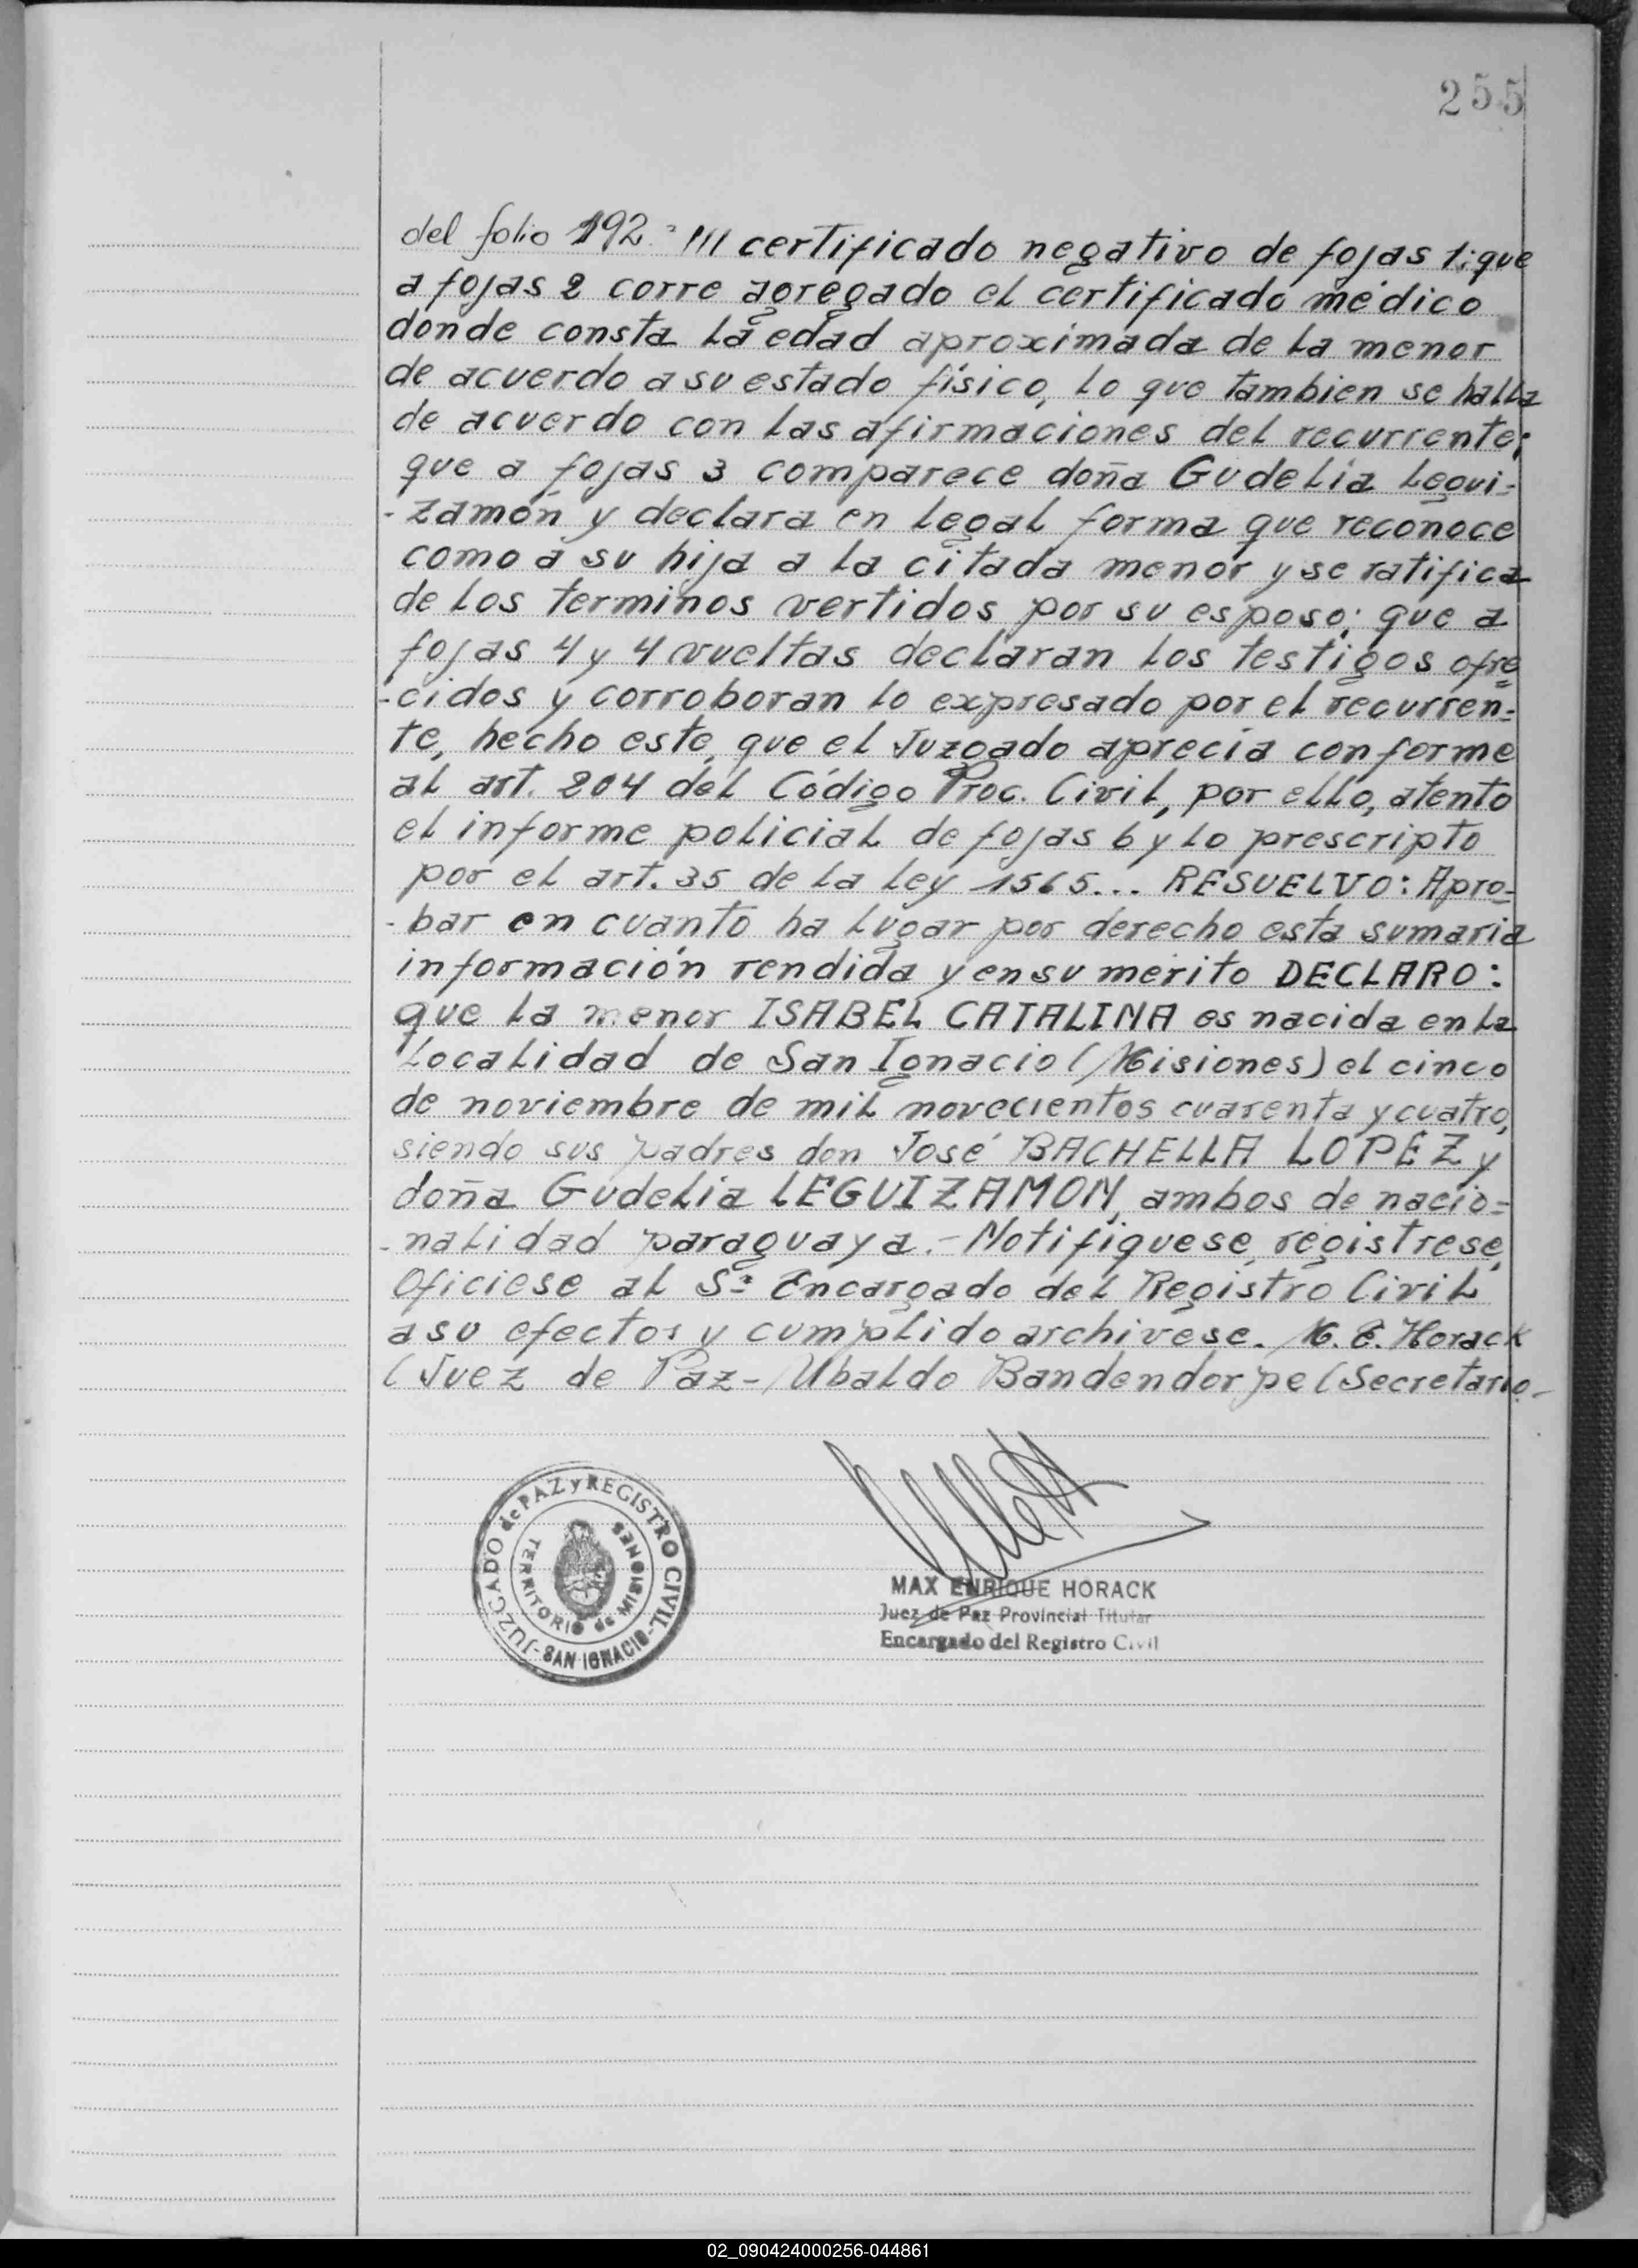 255
del folio 192." /// certificado negativo de fojas 1; que
a fojas 2 corre agregado el certificado médico
donde consta la edad aproximada de la menor
de acuerdo a su estado físico, lo que tambien se halla
de acuerdo con las afirmaciones del recurrente;
que a fojas 3 comparece doña Gudelia Legui=
-zamón y declara en legal forma que reconoce
como a su hija a la citada menor y se ratifica
de los terminos vertidos por su esposo; que a
fojas 4 y 4 vueltas declaran los testigos ofre
-cidos y corroboran lo expresado por el recurren=
te, hecho este, que el Juzgado aprecia conforme
al art. 204 del Código Proc. Civil, por ello, atento
el informe policial de fojas 6 y lo prescripto
por el art. 35 de la ley 1565... RESUELVO: Apro=
-bar en cuanto ha lugar por derecho esta sumaria
información rendida y en su mérito DECLARO:
que la menor ISABEL CATALINA es nacida en la
Localidad de San Ignacio (Misiones) el cinco
de noviembre de mil novecientos cuarenta y cuatro,
siendo sus padres don José BACHELLA LOPEZ y
doña Gudelia LEGUIZAMON, ambos de nacio=
-nalidad paraguaya.- Notifiquese, registrese,
Oficiese al Sr. Encargado del Registro Civil
a su efectos y cumplido archivese. M. E. Horack
(Juez de Paz-/Ubaldo Bandendorpe (Secretario-
JUZGADO de PAZ y REGISTRO CIVIL
-SAN IGNACIO-
TERRITORIO de MISIONES
MAX ENRIQUE HORACK
Juez de Paz Provincial Titular
Encargado del Registro Civil
02_090424000256-044861